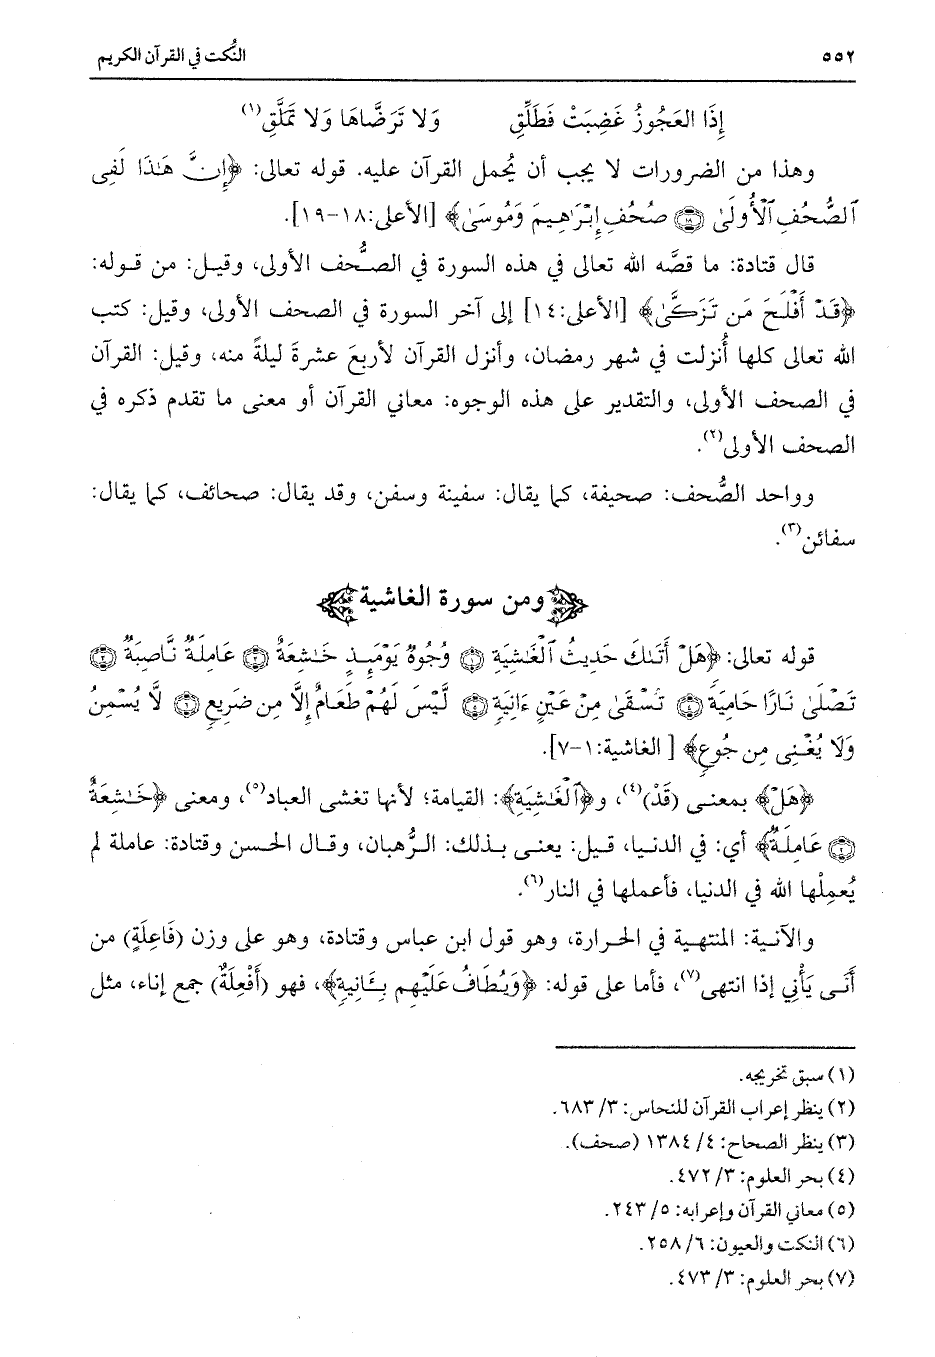 ٥٥٢ النُّكت في القرآن الكريم
إِذَا العَجُوزُ غَضِبَتْ فَطَلِّقِ وَلا تَرَضَّاهَا وَلا تَمَلَّقِ(١)
وهذا من الضرورات لا يجب أن يُحمل القرآن عليه. قوله تعالى: ﴿إِنَّ هَٰذَا لَفِى
ٱلصُّحُفِ ٱلْأُولَىٰ ۝١٨ صُحُفِ إِبْرَٰهِيمَ وَمُوسَىٰ﴾ [الأعلى:١٨-١٩].
قال قتادة: ما قصَّه الله تعالى في هذه السورة في الصُّحف الأولى، وقيل: من قوله:
﴿قَدْ أَفْلَحَ مَن تَزَكَّىٰ﴾ [الأعلى:١٤] إلى آخر السورة في الصحف الأولى، وقيل: كتب
الله تعالى كلها أُنزلت في شهر رمضان، وأنزل القرآن لأربعَ عشرةَ ليلةً منه، وقيل: القرآن
في الصحف الأولى، والتقدير على هذه الوجوه: معاني القرآن أو معنى ما تقدم ذكره في
الصحف الأولى(٢).
وواحد الصُّحف: صحيفة، كما يقال: سفينة وسفن، وقد يقال: صحائف، كما يقال:
سفائن(٣).
ومن سورة الغاشية
قوله تعالى: ﴿هَلْ أَتَىٰكَ حَدِيثُ ٱلْغَٰشِيَةِ ۝١ وُجُوهٌ يَوْمَئِذٍ خَٰشِعَةٌ ۝٢ عَامِلَةٌ نَّاصِبَةٌ ۝٣
تَصْلَىٰ نَارًا حَامِيَةً ۝٤ تُسْقَىٰ مِنْ عَيْنٍ ءَانِيَةٍ ۝٥ لَّيْسَ لَهُمْ طَعَامٌ إِلَّا مِن ضَرِيعٍ ۝٦ لَّا يُسْمِنُ
وَلَا يُغْنِى مِن جُوعٍ﴾ [ الغاشية:١-٧].
﴿هَلْ﴾ بمعنى (قَدْ)(٤)، و﴿ٱلْغَٰشِيَةِ﴾: القيامة؛ لأنها تغشى العباد(٥)، ومعنى ﴿خَٰشِعَةٌ
۝٢ عَامِلَةٌ﴾ أي: في الدنيا، قيل: يعنى بذلك: الرُّهبان، وقال الحسن وقتادة: عاملة لم
يُعمِلْها الله في الدنيا، فأعملها في النار(٦).
والآنية: المنتهية في الحرارة، وهو قول ابن عباس وقتادة، وهو على وزن (فَاعِلَةٍ) من
أَنَى يَأْنِي إذا انتهى(٧)، فأما على قوله: ﴿وَيُطَافُ عَلَيْهِم بِـَٔانِيَةٍ﴾، فهو (أَفْعِلَةٌ) جمع إناء، مثل
(١) سبق تخريجه.
(٢) ينظر إعراب القرآن للنحاس: ٣/ ٦٨٣.
(٣) ينظر الصحاح: ٤/ ١٣٨٤ (صحف).
(٤) بحر العلوم: ٣/ ٤٧٢.
(٥) معاني القرآن وإعرابه: ٥/ ٢٤٣.
(٦) النكت والعيون: ٦/ ٢٥٨.
(٧) بحر العلوم: ٣/ ٤٧٣.